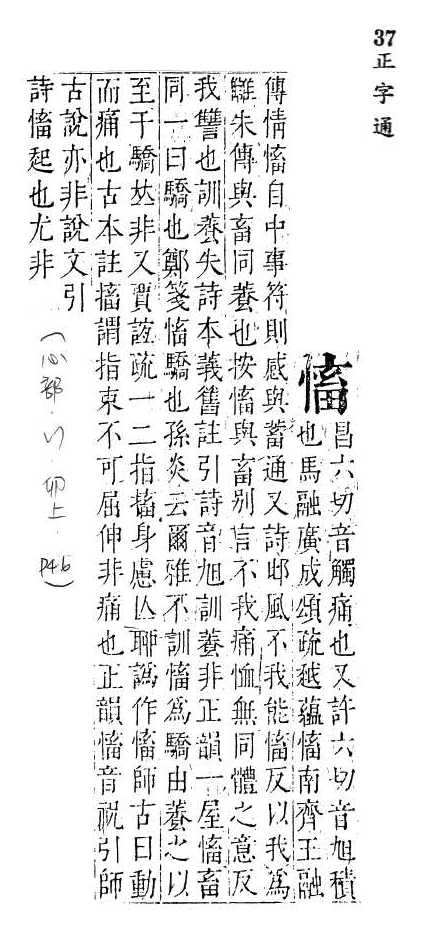 37 正字通
慉 昌六切音觸痛也又許六切音旭積
也馬融廣成頌疏越蘊慉南齊王融
傳情慉自中事符則感與蓄通又詩邶風不我能慉反以我爲
讎朱傳與畜同養也按慉與畜別言不我痛恤無同體之意反
我讐也訓養失詩本義舊註引詩音旭訓養非正韻一屋慉畜
同一曰驕也鄭箋慉驕也孫炎云爾雅不訓慉爲驕由養之以
至于驕𠀤非又賈誼疏一二指搐身慮亾聊譌作慉師古曰動
而痛也古本註搐謂指束不可屈伸非痛也正韻慉音祝引師
古說亦非說文引
詩慉起也尤非
(心部 卯上 P46)